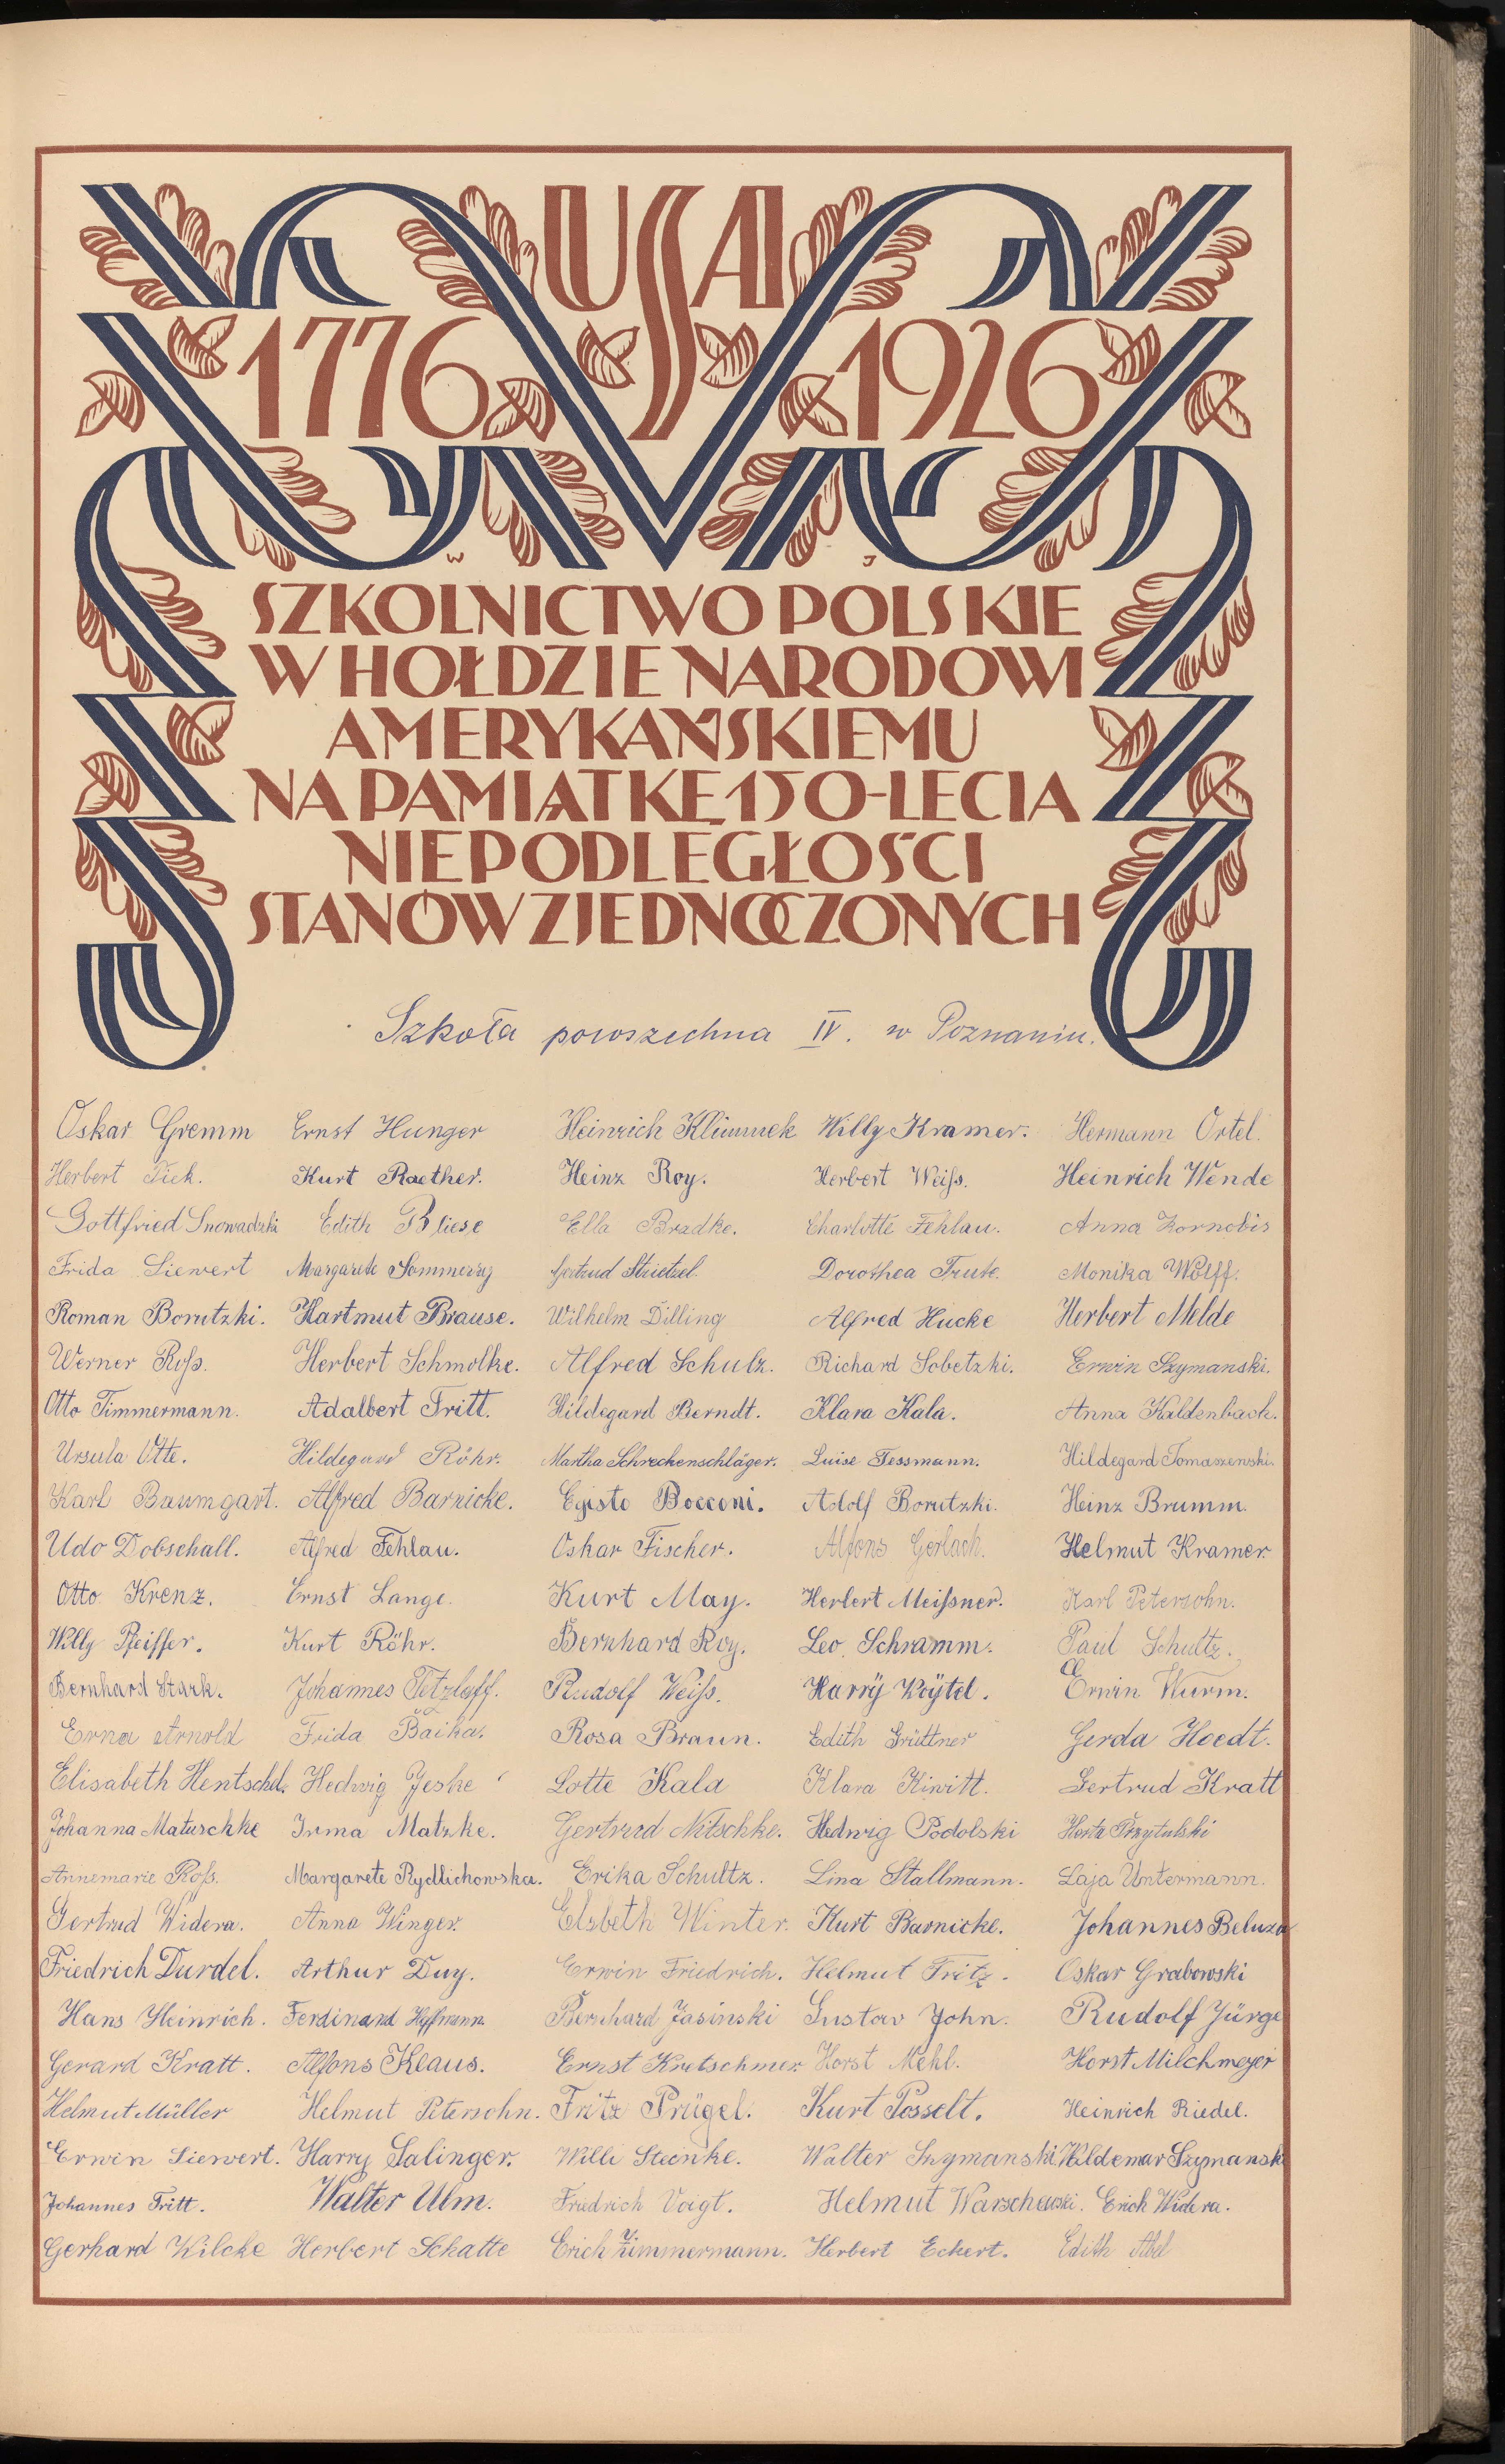 USA
1776 1926
W J
SZKOLNICTWO POLSKIE
W HOŁDZIE NARODOWI
AMERYKAŃSKIEMU
NA PAMIĄTKĘ 150-LECIA
NIEPODLEGŁOŚCI
STANÓW ZJEDNOCZONYCH
Szkoła powszechna IV. w Poznaniu.
Oskar Gremm Ernst Hunger Heinrich Klimmek Willy Kramer. Hermann Ortel.
Herbert Pick. Kurt Raether. Heinz Roy. Herbert Weiſs. Heinrich Wende
Gottfried Snowadzki Edith Bliese Ella Bradke. Charlotte Fehlau. Anna Kornobis
Frida Siewert Margarete Sommerey Gertrud Strietzel. Dorothea Trute. Monika Wolff.
Roman Borutzki. Hartmut Brause. Wilhelm Dilling Alfred Hucke Herbert Melde
Werner Roſs. Herbert Schmolke. Alfred Schulz. Richard Sobetzki. Erwin Szymanski.
Otto Timmermann. Adalbert Tritt. Hildegard Berndt. Klara Kala. Anna Kaldenbach.
Ursula Otte. Hildegard Röhr. Martha Schreckenschläger. Luise Tessmann. Hildegard Tomaszewski.
Karl Baumgart. Alfred Barnicke. Egisto Bocconi. Adolf Borutzki. Heinz Brumm.
Udo Dobschall. Alfred Fehlau. Oskar Fischer. Alfons Gerlach. Helmut Kramer
Otto Krenz. Ernst Lange. Kurt May. Herbert Meiſsner. Karl Petersohn.
Willy Pfeiffer. Kurt Röhr. Bernhard Roy. Leo Schramm. Paul Schultz.
Bernhard Stark. Johannes Tetzlaff. Rudolf Weiſs. Harry Koytel. Erwin Wurm.
Erna Arnold Frida Baika. Rosa Braun. Edith Grüttner Gerda Hoedt.
Elisabeth Hentschel. Hedwig Jeske Lotte Kala Klara Kiwitt. Gertrud Kratt
Johanna Matuschke Irma Matzke. Gertrud Nitschke. Hedwig Podolski Herta Przytulski
Annemarie Roſs. Margarete Rydlichowska. Erika Schultz. Lina Stallmann. Laja Untermann.
Gertrud Widera. Anna Winger. Elsbeth Winter. Kurt Barnicke. Johannes Beluza
Friedrich Durdel. Arthur Duy. Erwin Friedrich. Helmut Fritz. Oskar Grabowski
Hans Heinrich. Ferdinand Hoffmann. Bernhard Jasinski Gustav John. Rudolf Jürge
Gerard Kratt. Alfons Klaus. Ernst Kretschmer Horst Mehl. Horst Milchmeyer
Helmut Müller Helmut Petersohn. Fritz Prügel. Kurt Posselt. Heinrich Riedel.
Erwin Siewert. Harry Salinger. Willi Steinke. Walter Szymanski. Waldemar Szymansk
Johannes Tritt. Walter Ulm. Friedrich Voigt. Helmut Warschewski. Erich Widera.
Gerhard Wilcke Herbert Schatte Erich Zimmermann. Herbert Eckert. Edith Abel